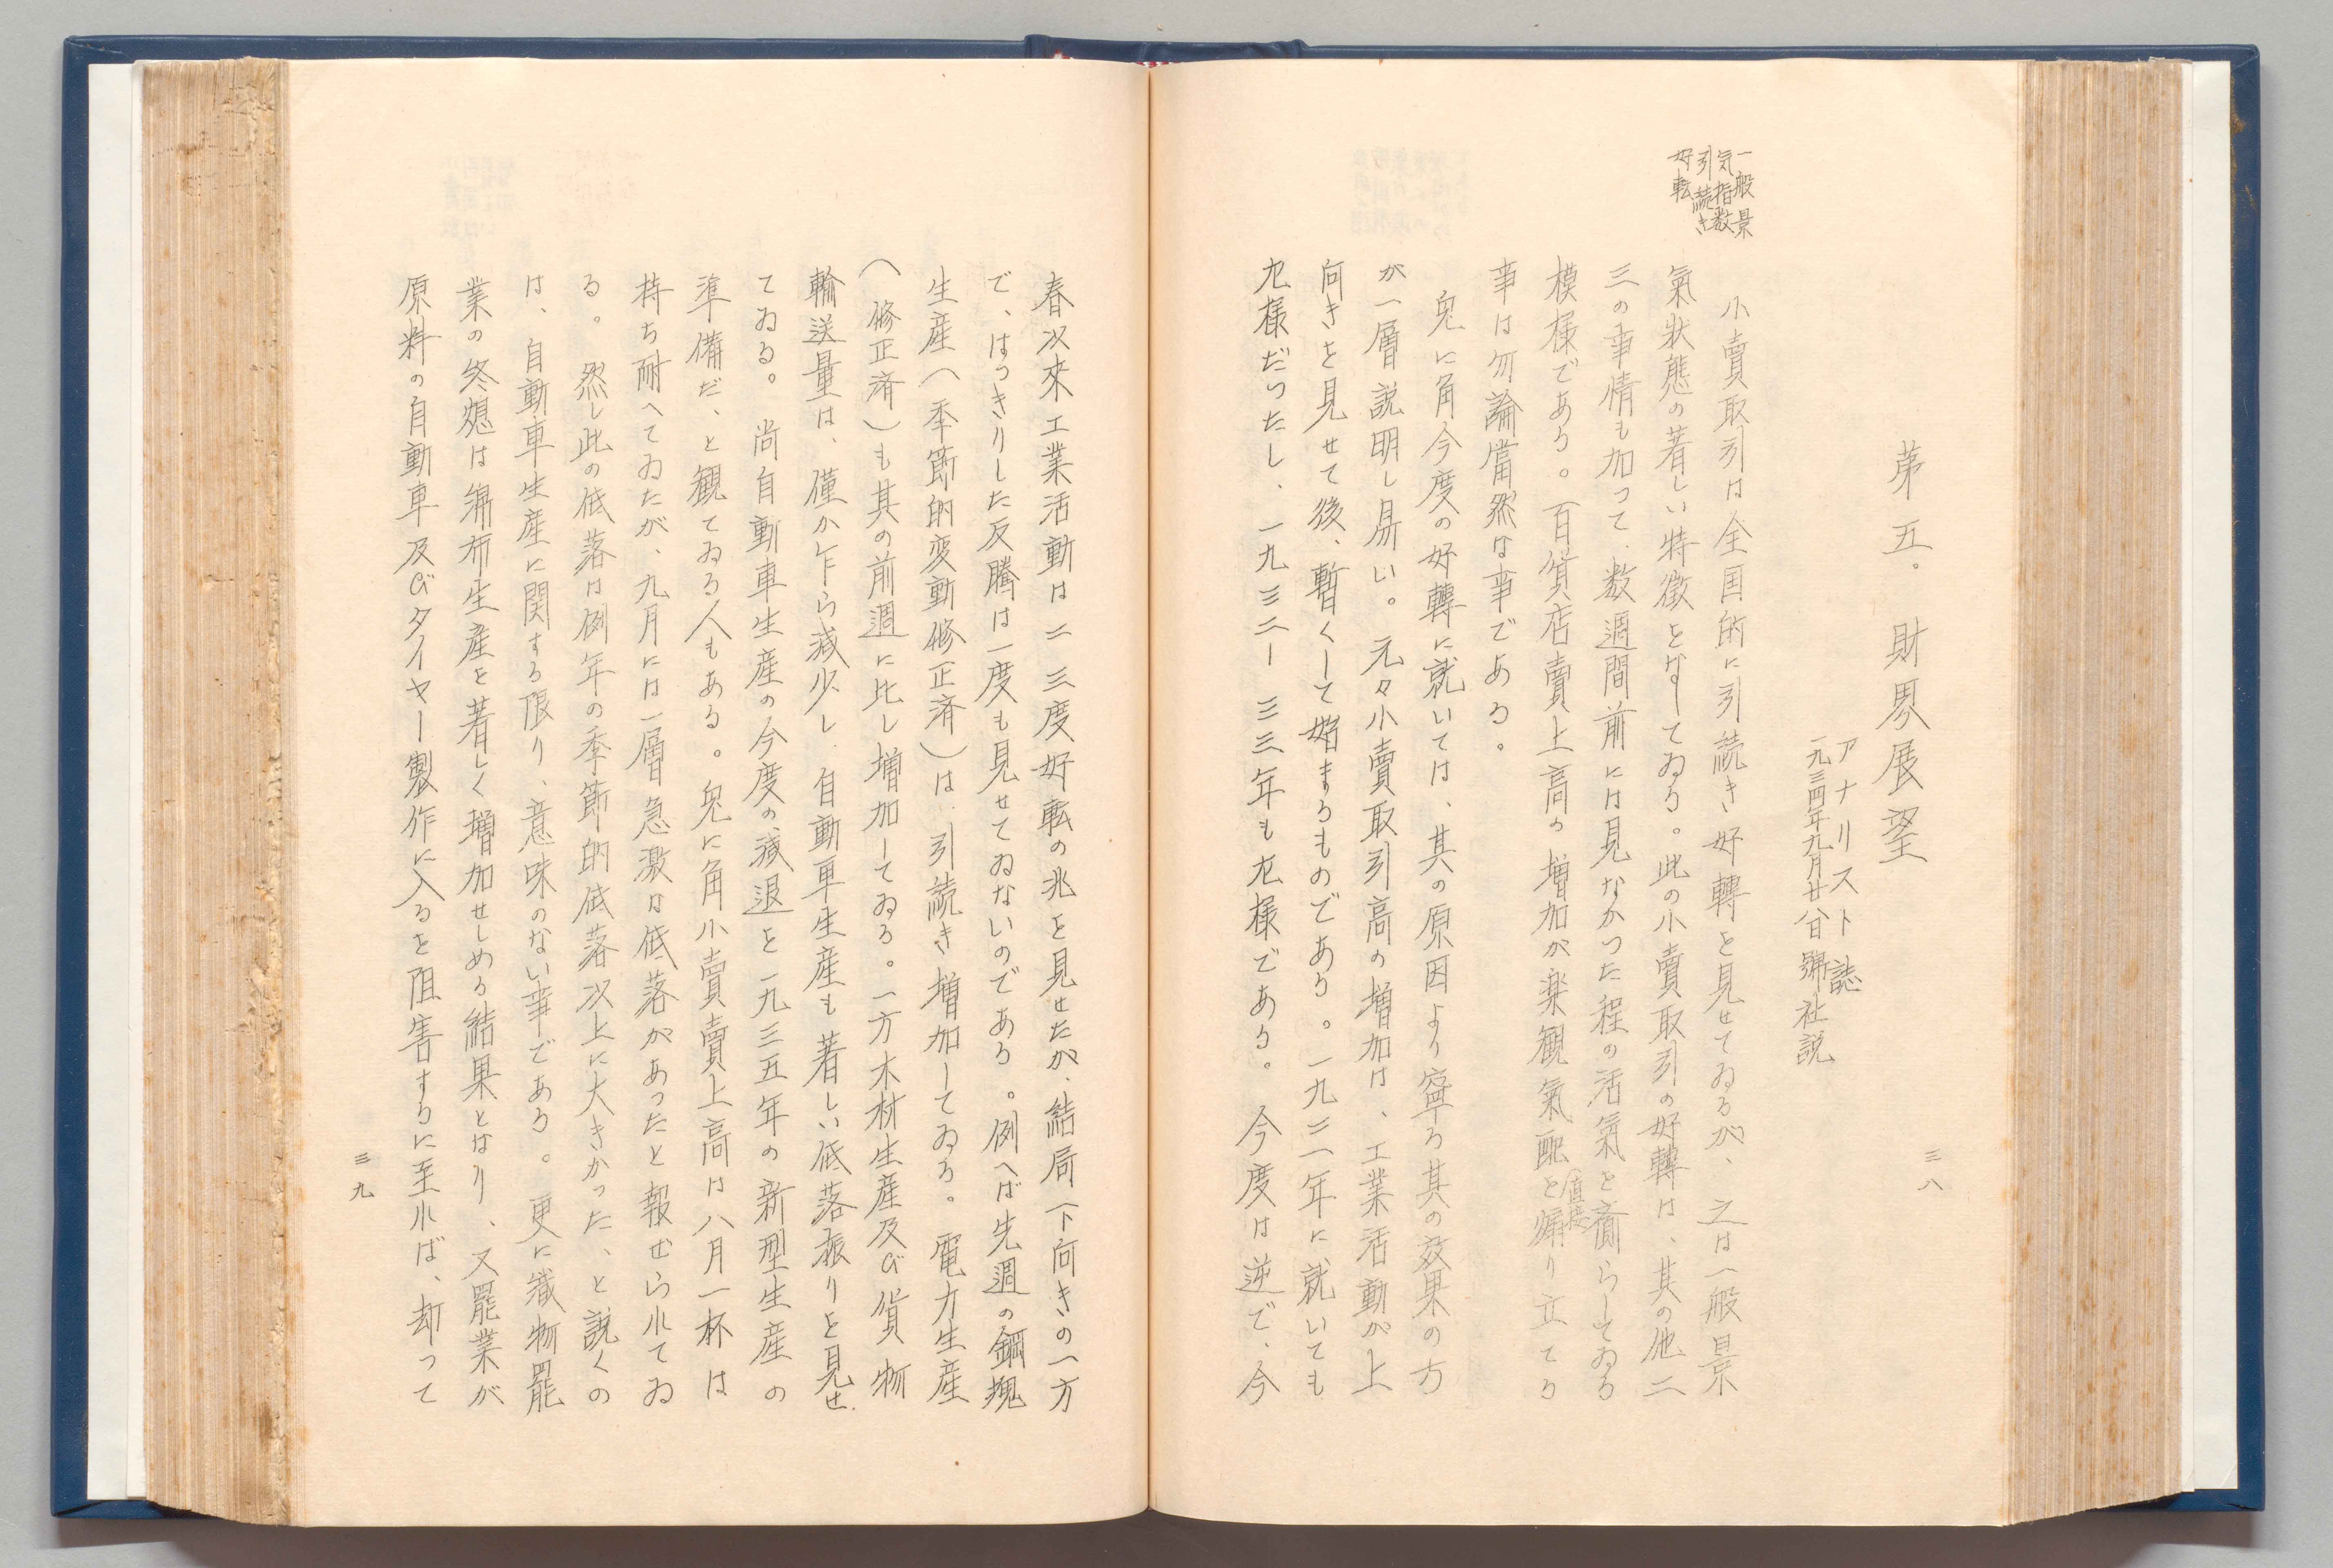 三八
第五。財界展望
アナリスト誌
一九三四年九月廿八日号社説
一般景
気指数
引続き
好転
小賣取引は全国的に引続き好轉を見せてゐるが、之は一般景
氣狀態の著しい特徴となしてゐる。此の小賣取引の好轉は、其の他二
三の事情も加って、数週間前には見なかった程の活氣を齎らしてゐる
模樣である。百貨店賣上高の増加が楽観氣配を煽り立てる
(直接
事は勿論當然な事である。
兎に角今度の好轉に就いては、其の原因より寧ろ其の效果の方
が一層説明し易い。元々小賣取引高の増加は、工業活動が上
向きを見せて後、暫くして始まるものである。一九二一年に就いても
尤樣だつたし、一九三二―三三年も尤樣である。今度は逆で、今
春以來工業活動は二三度好転の兆を見せたが、結局下向きの一方
で、はっきりした反騰は一度も見せてゐないのである。例へば先週の鋼塊
生産(季節的変動修正済)は、引続き増加してゐる。電力生産
(修正済)も其の前週に比し増加してゐる。一方木材生産及び貨物
輸送量は、僅か乍ら減少し、自動車生産も著しい低落振りを見せ
てゐる。尚自動車生産の今度の減退を一九三五年の新型生産の
準備だ、と観てゐる人もある。兎に角小賣賣上高は八月一杯は
持ち耐へてゐたが、九月には一層急激な低落があったと報ぜられてゐ
る。然し此の低落は例年の季節的低落以上に大きかった、と説くの
は、自動車生産に関する限り、意味のない事である。更に織物罷
業の終熄は綿布生産を著しく増加せしめる結果となり、又罷業が
原料の自動車及びタイヤー製作に入るを阻害するに至れば、却って
三九